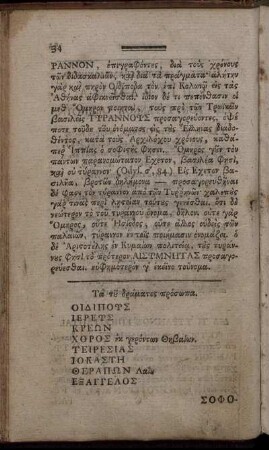 34
ΡΑΝΝΟΝ, ἐπιγραφόντες, διὰ τοὺς χρόνους
τῶν διδασκαλιῶν, καὶ διὰ τὰ πράγματα· ἀλήτην
γὰρ καὶ πηρὸν Οἰδίποδα τὸν ἐπὶ Κολωνῷ εἰς τὰς
Ἀθήνας ἀφικνεῖσθαι. ἴδιον δέ τι πεπόνθασιν οἱ
μεθ᾽ Ὅμηρον ποιηταὶ, τοὺς πρὸ τῶν Τροϊκῶν
βασιλεῖς ΤΥΡΑΝΝΟΥΣ προσαγορεύοντες, ὀψέ
ποτε τοῦδε τοῦ ὀνόματος εἰς τὰς Ἕλληνας διαδο-
θέντος, κατὰ τοὺς Ἀρχιλόχου χρόνους, καθά-
περ Ἱππίας ὁ σοφιστής φησιν. Ὅμηρος γῶν τὸν
πάντων παρανομώτατον Ἔχετον, βασιλέα φησὶ,
καὶ οὐ τύραννον (Odyſ. σ΄, 84.) Εἰς Ἔχετον βα-
σιλῆα, βροτῶν δηλήμονα — προσαγορευθῆναι
δέ φασι τὸν τύραννον ἀπὸ τῶν Τυρρηνῶν· χαλεποὺς
γάρ τινας περὶ λῃστείαν τούτους γενέσθαι. ὅτι δὲ
νεώτερον τὸ τοῦ τυράννου ὄνομα, δῆλον. οὔτε γὰρ
Ὅμηρος, οὔτε Ἡσίοδος, οὔτε ἄλλος οὐδεὶς τῶν
παλαιῶν, τύραννον ἐν τοῖς ποιήμασιν ὀνομάζει. ὁ
δὲ Ἀριστοτέλης ἐν Κυμαίων πολιτείᾳ, τοὺς τυράν-
νους φησὶ τὸ πρότερον ΑΙΣΥΜΝΗΤΑΣ προσαγο-
ρεύεσθαι. εὐφημότερον γ᾽ ἐκεῖνο τοὔνομα.
Τὰ τοῦ δράματος πρόσωπα.
ΟΙΔΙΠΟΥΣ
ΙΕΡΕΥΣ
ΚΡΕΩΝ
ΧΟΡΟΣ ἐκ γερόντων Θηβαίων.
ΤΕΙΡΕΣΙΑΣ
ΙΟΚΑΣΤΗ
ΘΕΡΑΠΩΝ Λαΐου
ΕΞΑΓΓΕΛΟΣ
ΣΟΦΟ-